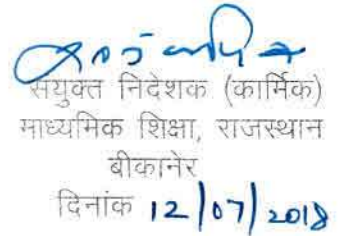 संयुक्त निदेशक (कार्मिक)
माध्यमिक शिक्षा, राजस्थान
बीकानेर
दिनांक 12/07/2018